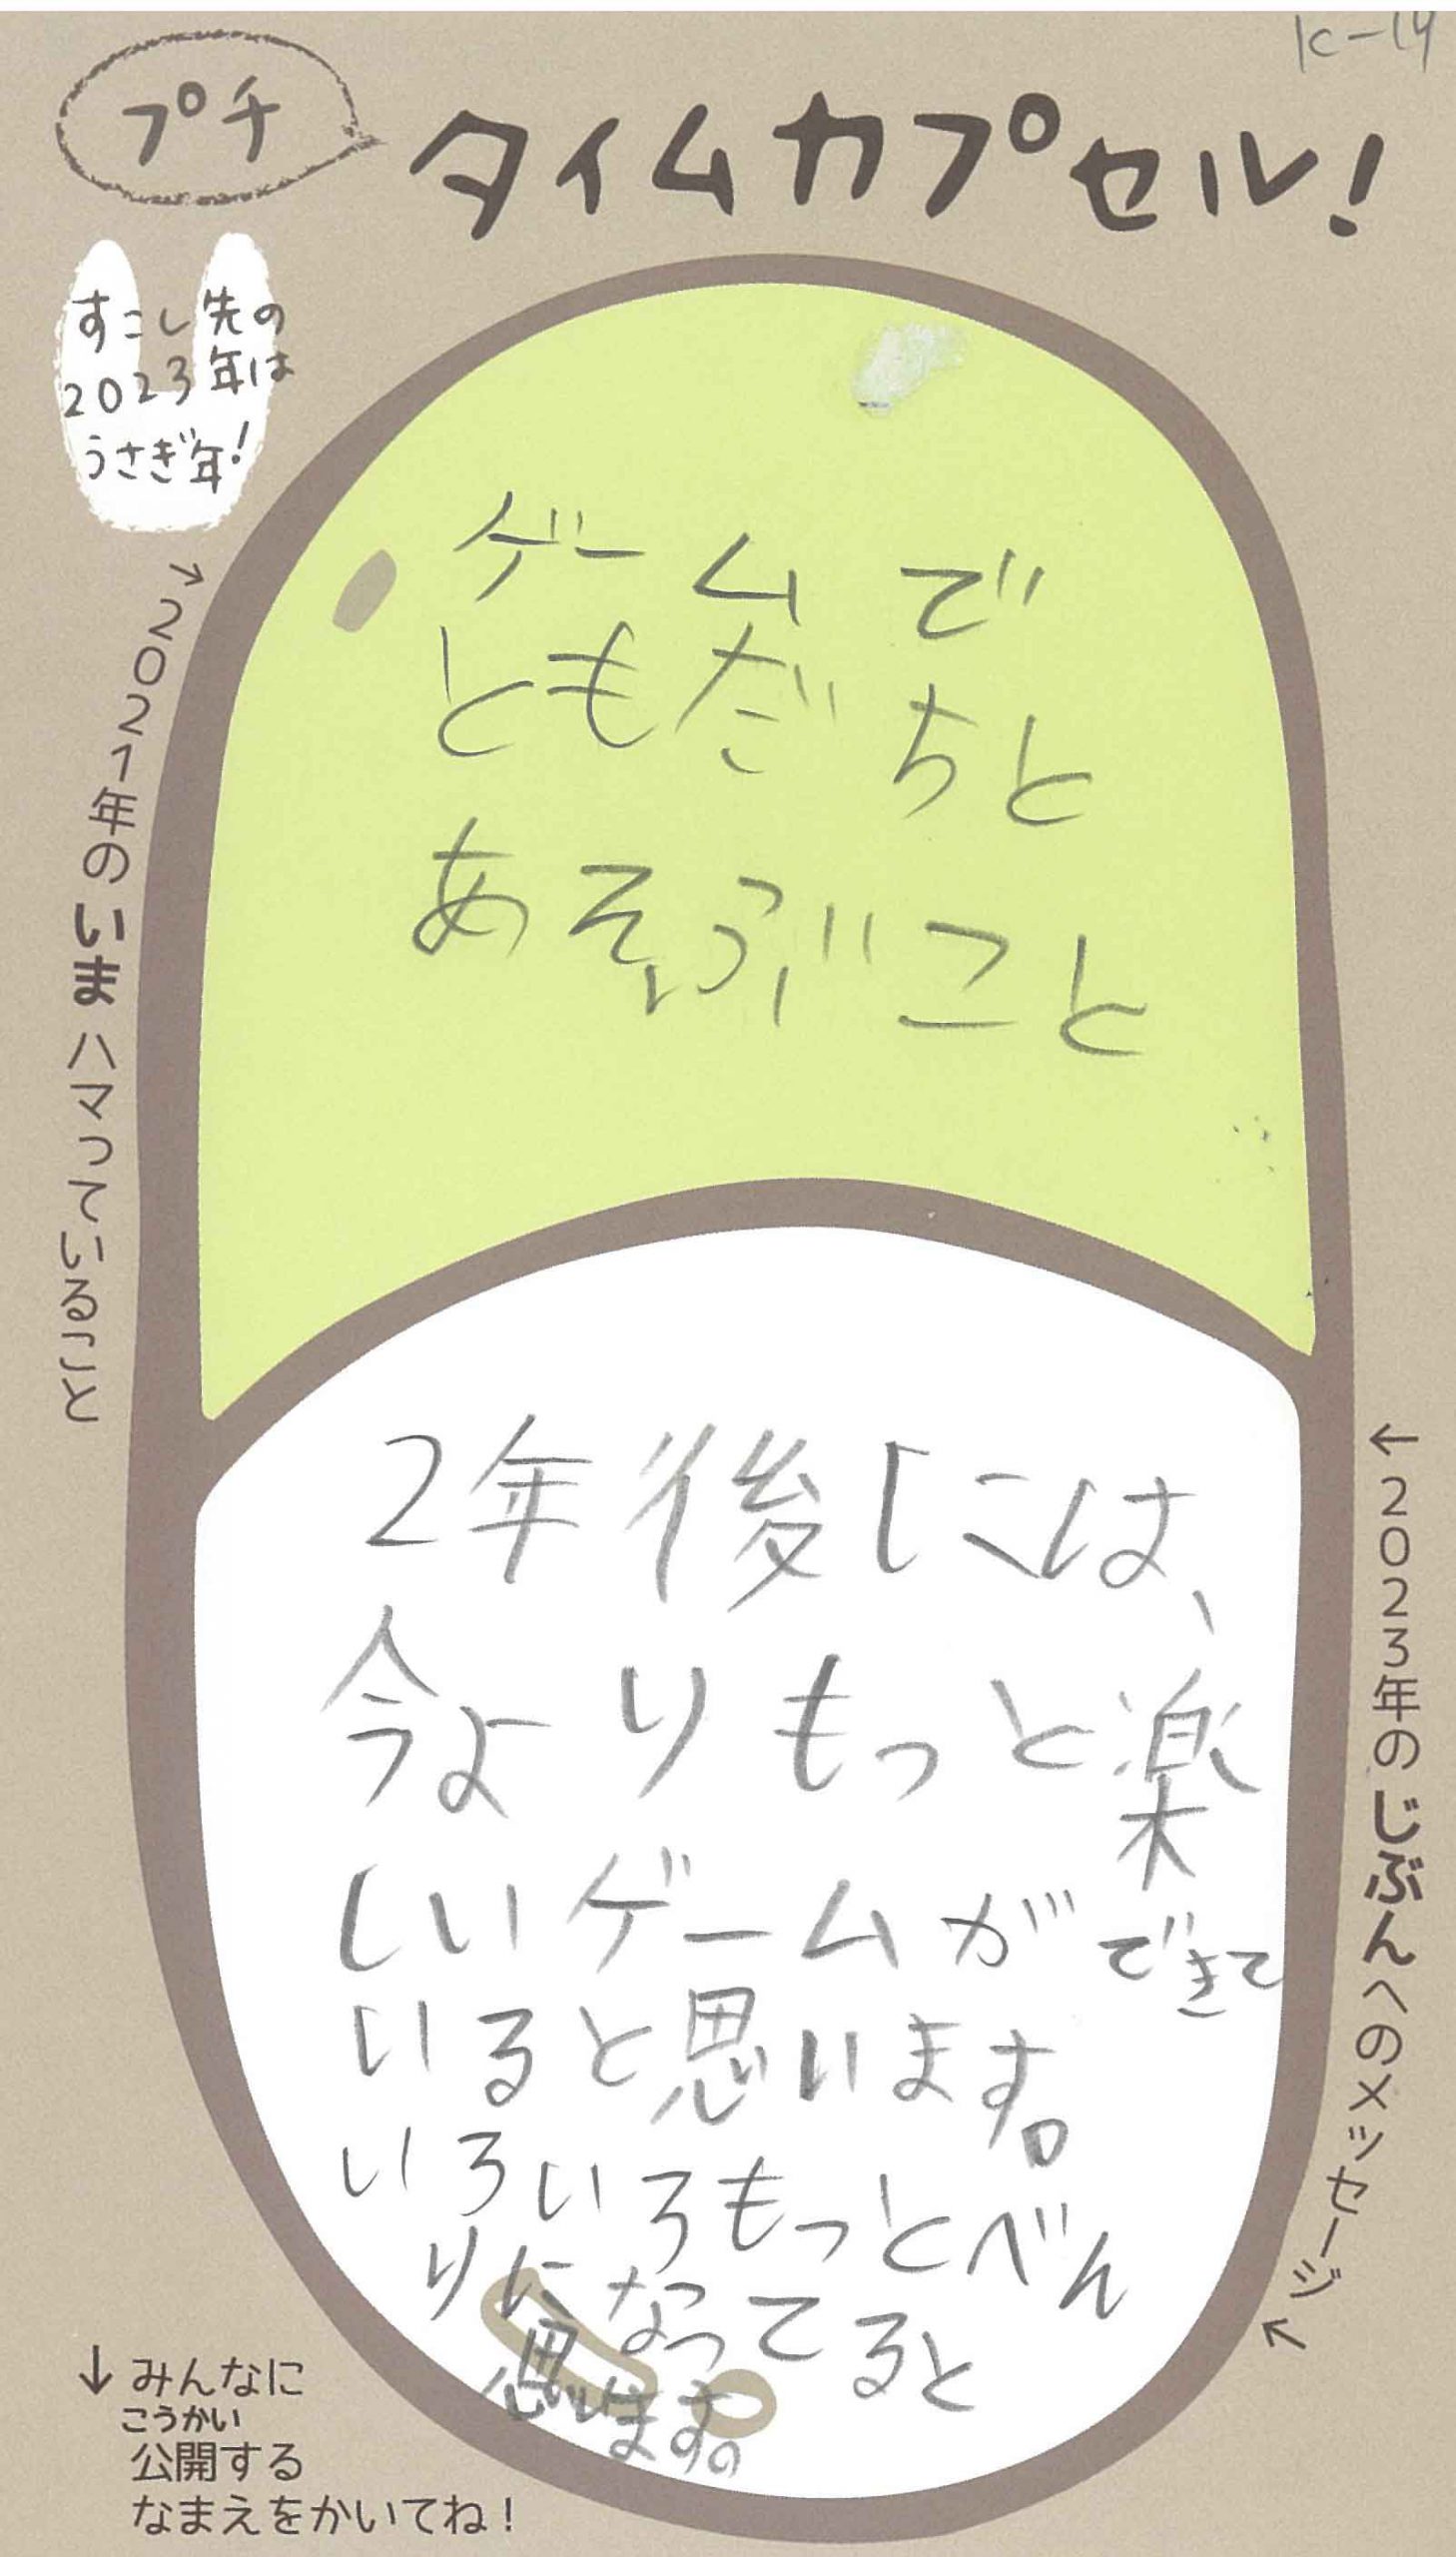 K-14
プチ
タイムカプセル!
すこし先の
2023年は
うさぎ年!
→2021年のいまハマっていること
ゲームで
ともだちと
あそぶこと
←2023年のじぶんへのメッセージ↖
2年後には、
今よりもっと楽
しいゲームができて
いると思います。
いろいろもっとべん
りになってると
思います。
↓みんなに
こうかい
公開する
なまえをかいてね!